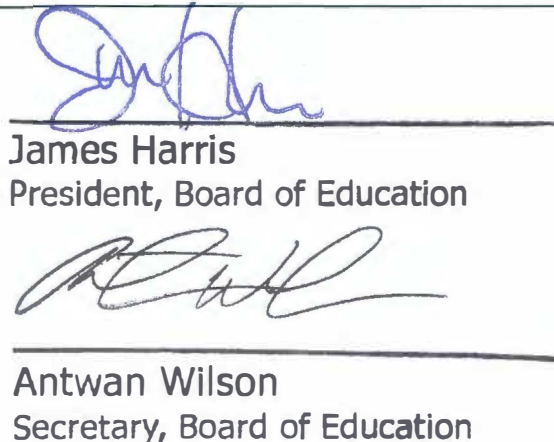 James Harris
President, Board of Education
Antwan Wilson
Secretary, Board of Education